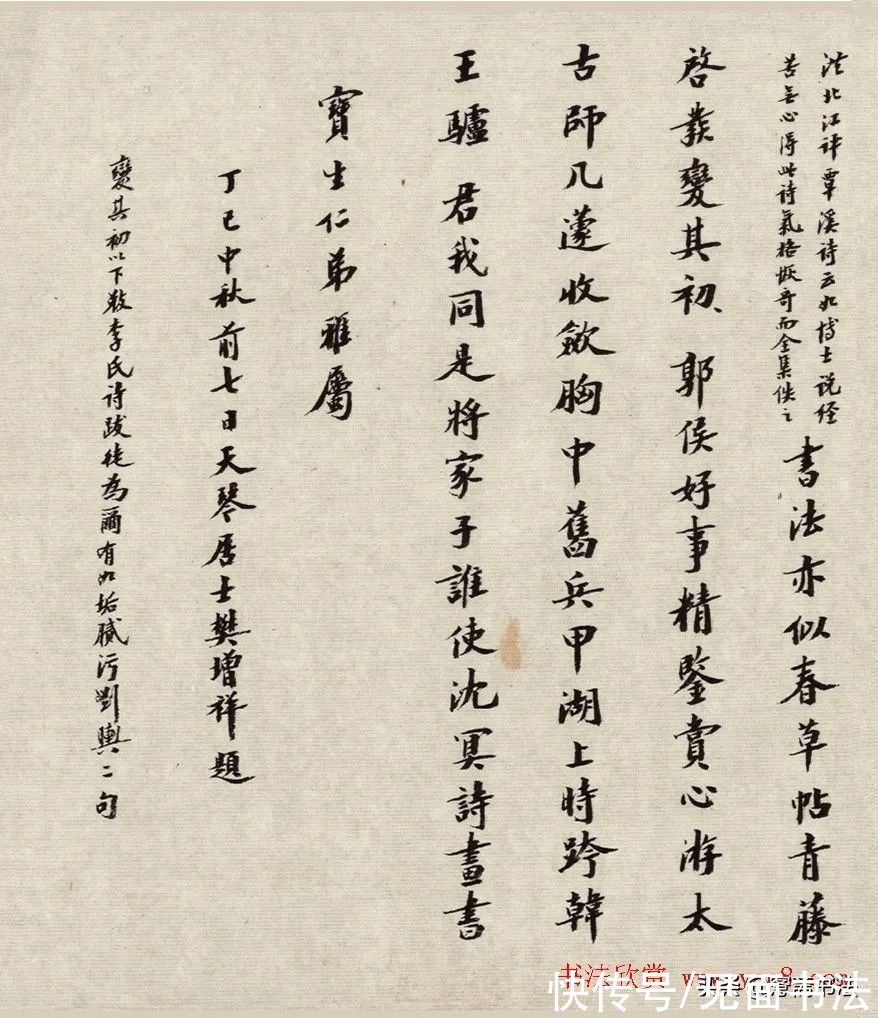 洪北江评覃溪诗云如博士说经
苦无心得此诗气格恢奇而全集佚之
書法亦似春草帖青藤
啓發變其初郭侯好事精鑒賞心游太
古師几蘧收斂胸中舊兵甲湖上時跨韓
王驢君我同是將家子誰使沈冥詩畫書
寶生仁弟雅屬
丁巳中秋前七日天琴居士樊增祥題
變其初以下散李氏詩跋徒為爾有如垢膩污劉輿二句
书法欣赏
快传号/见面书法